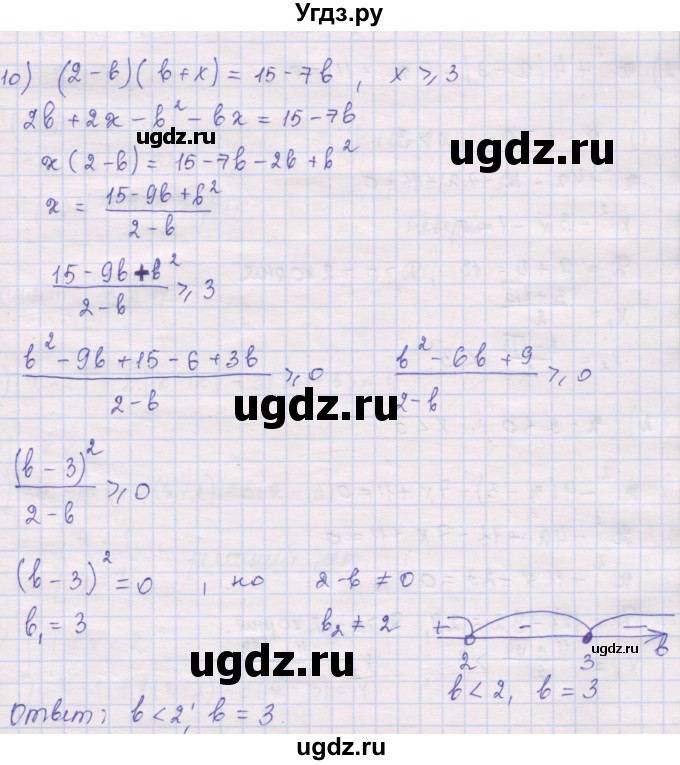 Угдз.ру
10) (2 - b)(b + x) = 15 - 7b, x ⩾ 3
2b + 2x - b² - bx = 15 - 7b
ugdz.ru
x(2 - b) = 15 - 7b - 2b + b²
ugdz.ru
x = (15 - 9b + b²)/(2 - b)
(15 - 9b + b²)/(2 - b) ⩾ 3
(b² - 9b + 15 - 6 + 3b)/(2 - b) ⩾ 0 (b² - 6b + 9)/(2 - b) ⩾ 0
ugdz.ru
(b - 3)²/(2 - b) ⩾ 0
(b - 3)² = 0, но 2 - b ≠ 0
b₁ = 3 b₂ ≠ 2 + - -
ugdz.ru
ugdz.ru
2 3 b
b < 2, b = 3
Ответ: b < 2; b = 3.
ugdz.ru
ugdz.ru